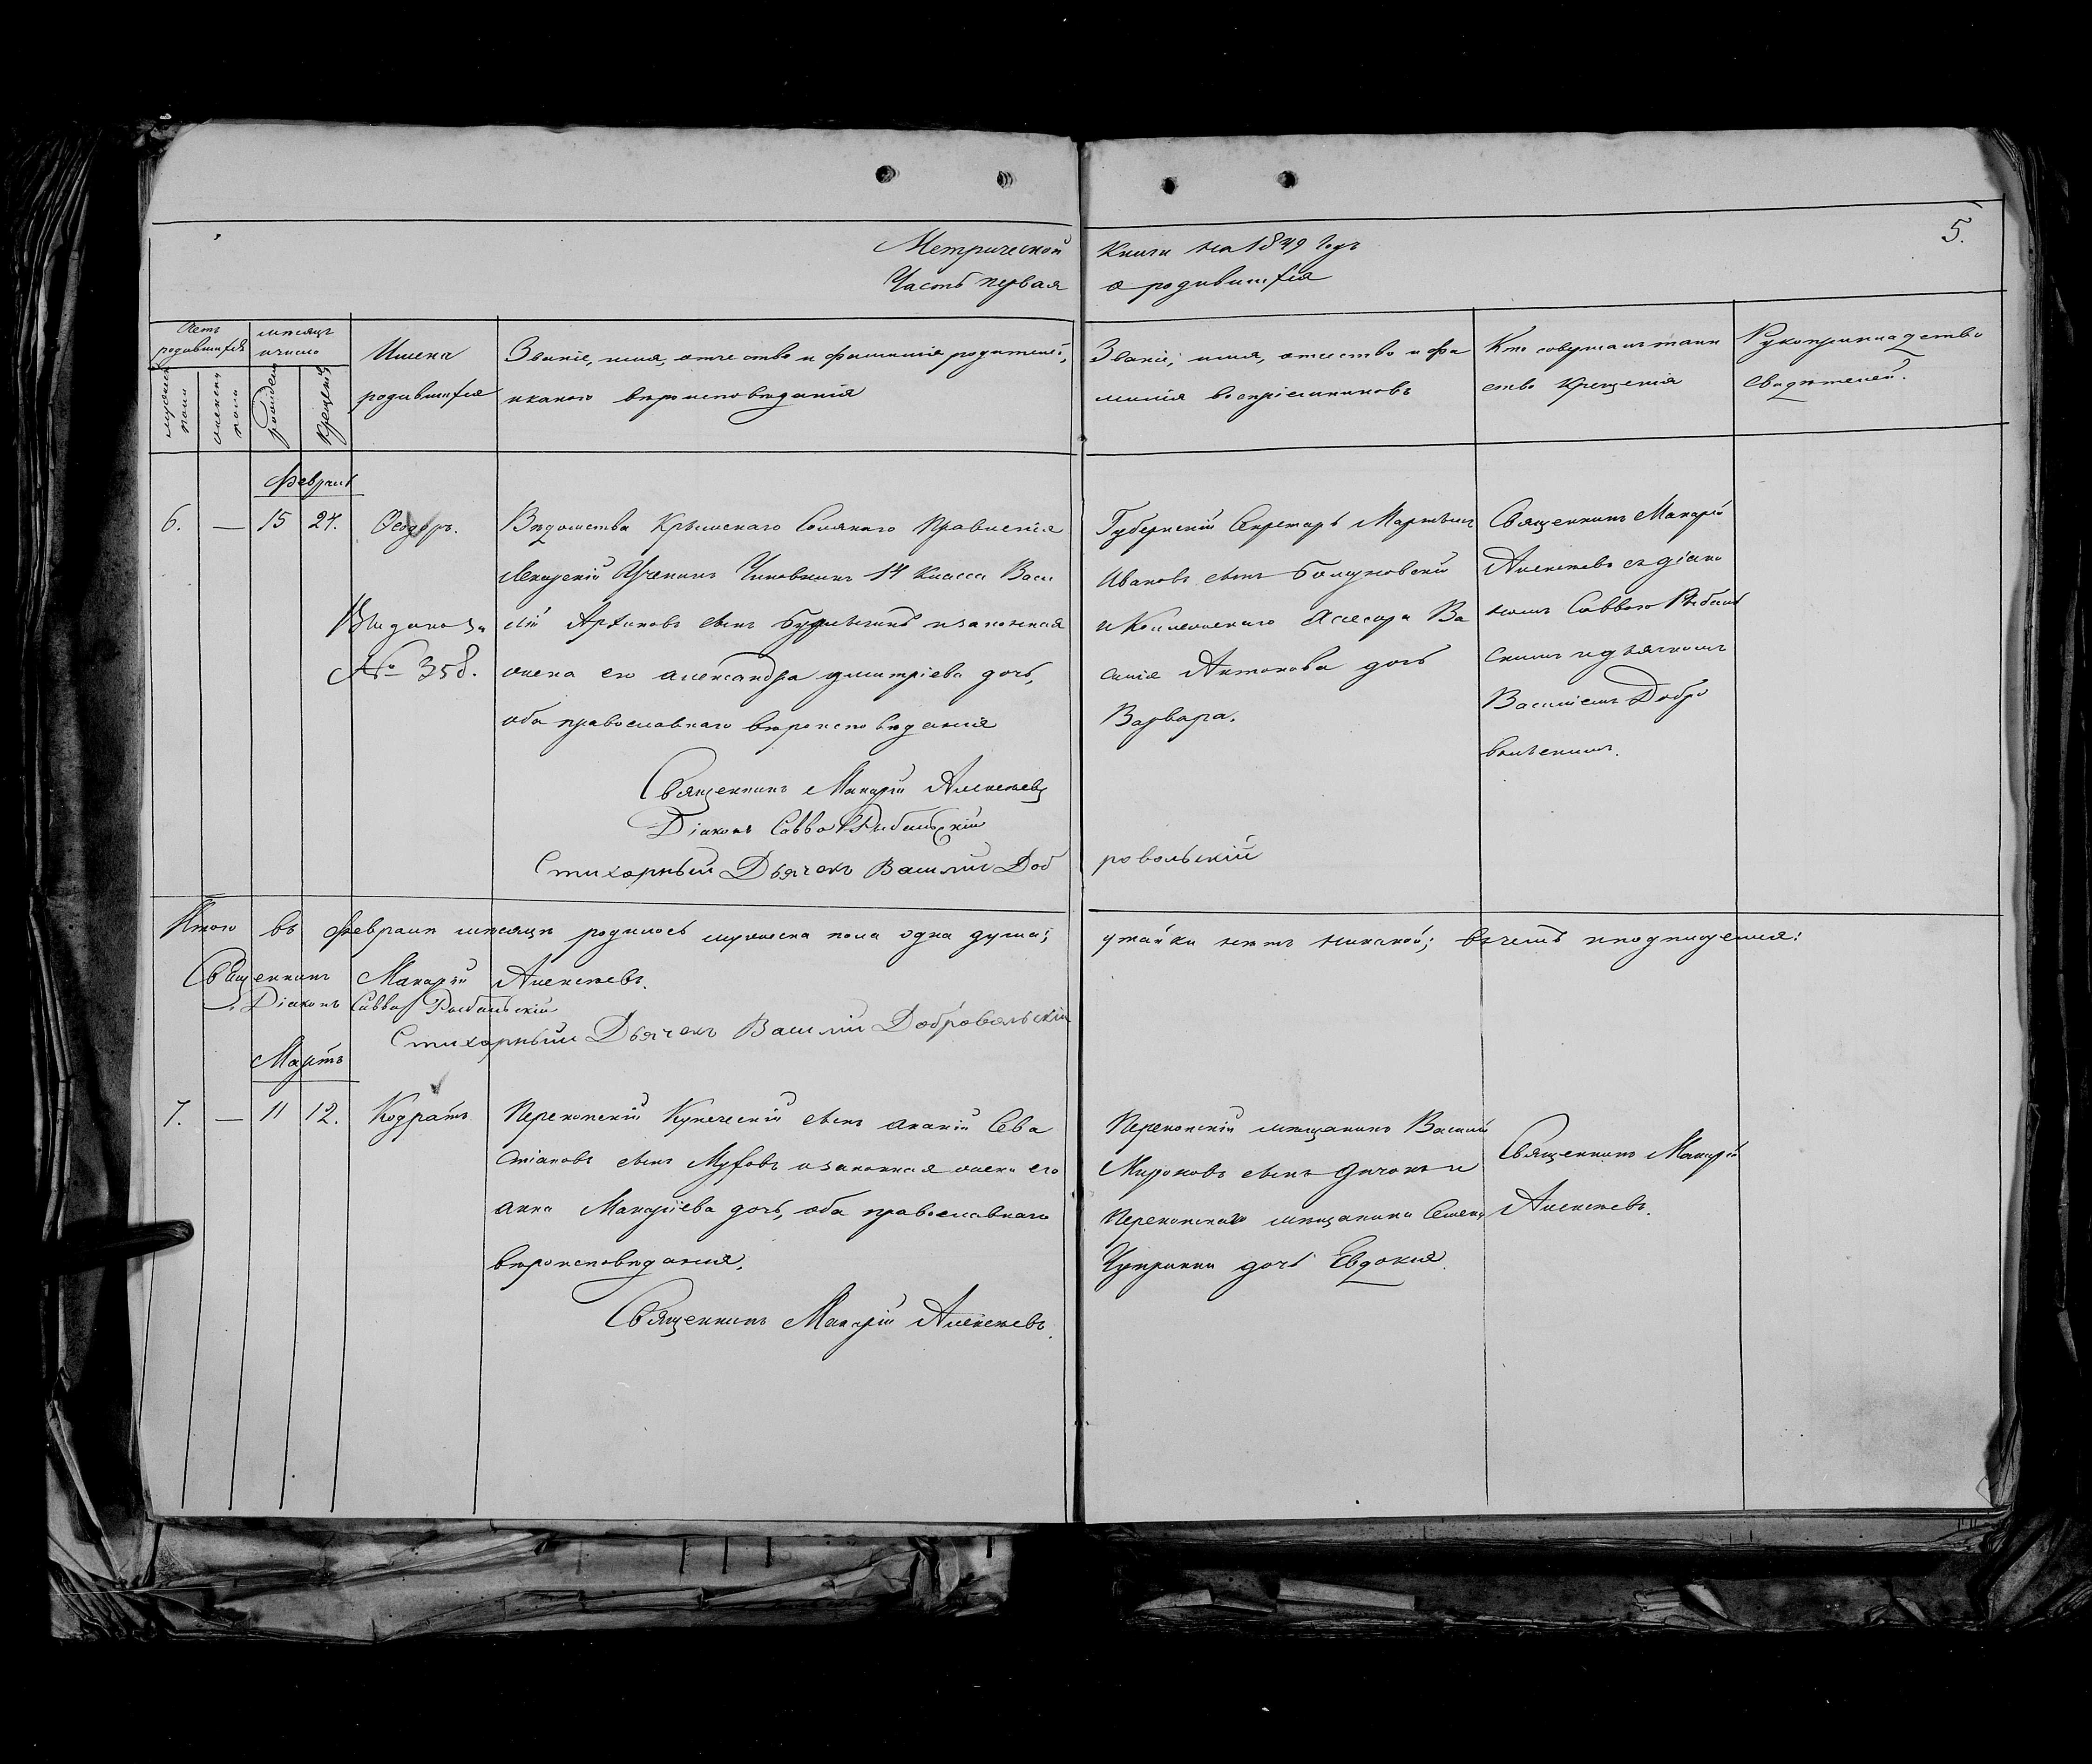 Метрической книги на 1849 годъ
5.
Часть первая о родившихся
Счетъ родившихся
мѣсяцъ и число
Имена родившихся
Званіе, имя, отчество и фамилія родителей,
и какого вѣроисповѣданія
Званіе, имя, отчество и фа
милія воспріемниковъ
Кто совершалъ таин
ство крещенія
Рукоприкладство
свидѣтелей.
мужеска пола
женска пола
рожденія
крещенія
Февраль
6.
—
15
24.
Ѳеодоръ.
Вѣдомства Крымскаго Солянаго Правленія
Лекарскій Ученикъ Чиновникъ 14 класса Васи
лій Архиповъ сынъ и законная
жена его Александра Димитріева дочь,
оба православнаго вѣроисповѣданія
Выдано за
№ 358.
Священникъ Макарій Алексѣевъ
Діаконъ Савва Рыбальскій
Стихарный Дьячекъ Василій Доб
ровольскій
Губернскій Секретарь Мартынъ
Ивановъ сынъ
и Коллежскаго Асесора Ва
силія Антонова дочь
Варвара.
Священникъ Макарій
Алексѣевъ съ діако
номъ Саввою Рыбаль
скимъ и дьячкомъ
Василіемъ Добро
вольскимъ.
Итого въ Февралѣ мѣсяцѣ родилось мужеска пола одна душа; утайки нѣтъ никакой; въ чемъ и подписуемся:
Священникъ Макарій Алексѣевъ.
Діаконъ Савва Рыбальскій
Стихарный Дьячекъ Василій Добровольскій
Мартъ
7.
—
11
12.
Кодратъ
Перекопскій Купеческій сынъ Ананій Сева
стіановъ сынъ и законная жена его
Анна Макаріева дочь, оба православнаго
вѣроисповѣданія.
Священникъ Макарій Алексѣевъ.
Перекопскій мѣщанинъ Василій
Мироновъ сынъ и
Перекопскаго мѣщанина Семена
Чуприны дочь Евдокія.
Священникъ Макарій
Алексѣевъ.